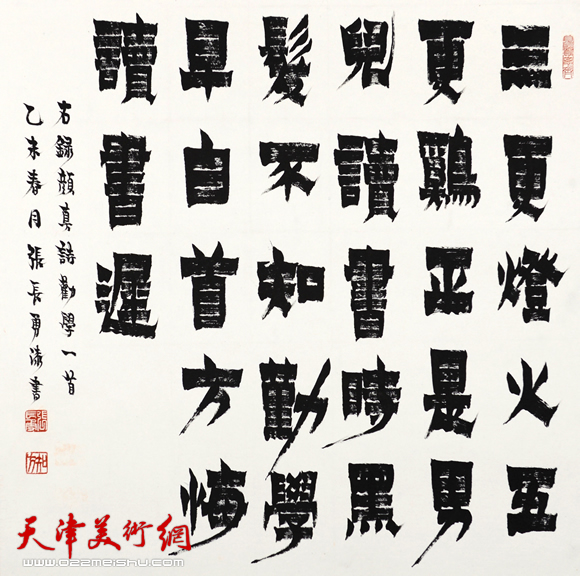 三更燈火五
更鷄正是男
兒讀書時黑
髮不知勤學
早白首方悔
讀書遲
右錄顏真詩勸學一首
乙未春月張長勇漆書
天津美術網
www.022meishu.com